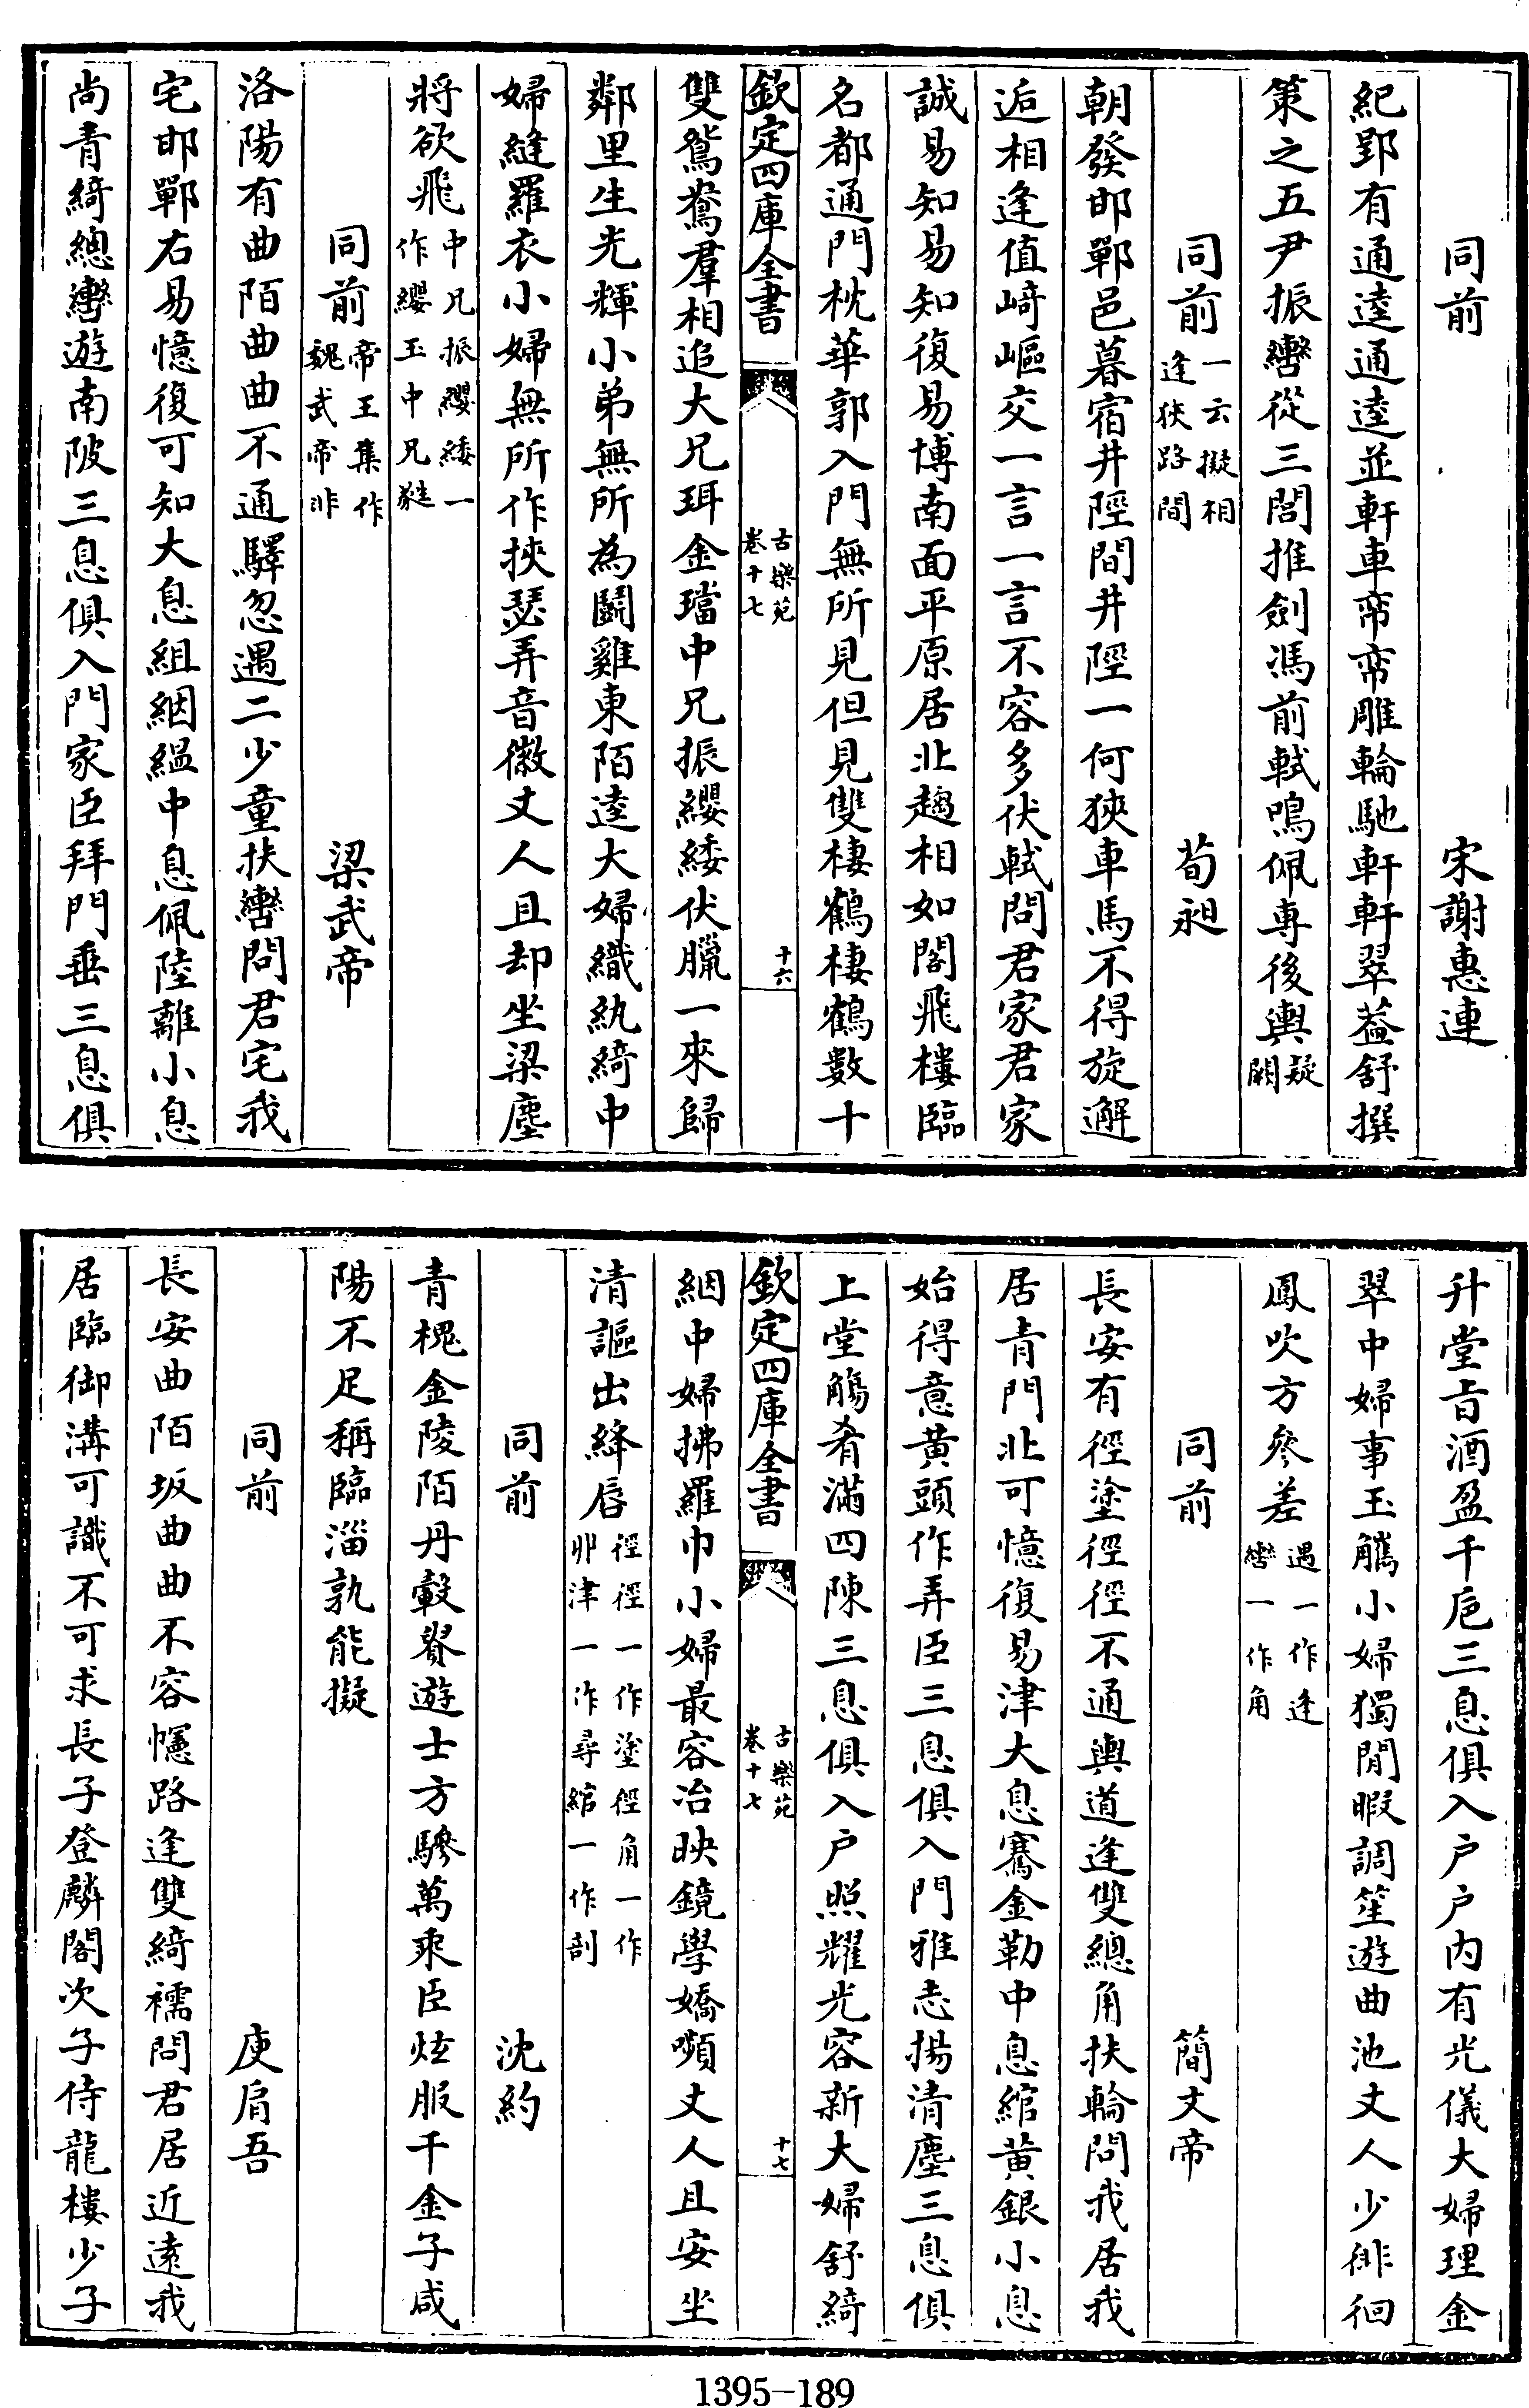 同前 宋謝惠連
紀郢有通逵通逵並軒車帟帟雕輪馳軒軒翠葢舒撰
策之五尹振轡從三閭推劍馮前軾鳴佩専後輿疑闕
同前一云擬相逢狹路間 荀昶
朝發邯鄲邑暮宿井陘間井陘一何狹車馬不得旋邂
逅相逢值崎嶇交一言一言不容多伏軾問君家君家
誠易知易知復易博南面平原居北趨相如閣飛樓臨
名都通門枕華郭入門無所見但見雙棲鶴棲鶴數十
欽定四庫全書 古樂苑卷十七 十六
雙鴛鴦羣相追大兄珥金璫中兄振纓緌伏臘一來歸
鄰里生光輝小弟無所為鬭雞東陌逵大婦織紈綺中
婦縫羅衣小婦無所作挾瑟弄音徽丈人且却坐梁塵
將欲飛中兄振纓緌一作纓玉中兄㽔
同前帝王集作魏武帝非 梁武帝
洛陽有曲陌曲曲不通驛忽遇二少童扶轡問君宅我
宅邯鄲右易憶復可知大息組絪緼中息佩陸離小息
尚青綺總轡遊南陂三息俱入門家臣拜門垂三息俱
升堂㫖酒盈千巵三息俱入户户内有光儀大婦理金
翠中婦事玉觿小婦獨閒暇調笙遊曲池丈人少徘徊
鳳吹方參差遇一作逢轡一作角
同前 簡文帝
長安有徑塗徑徑不通輿道逢雙總角扶輪問我居我
居青門北可憶復易津大息騫金勒中息綰黄銀小息
始得意黄頭作弄臣三息俱入門雅志揚清塵三息俱
上堂觴肴滿四陳三息俱入户照耀光容新大婦舒綺
欽定四庫全書 古樂苑卷十七 十七
絪中婦拂羅巾小婦最容冶映鏡學嬌嚬丈人且安坐
清謳出絳唇徑徑一作塗徑角一作丱津一作尋綰一作剖
同前 沈約
青槐金陵陌丹轂貴遊士方驂萬乘臣炫服千金子咸
陽不足稱臨淄孰能擬
同前 庾肩吾
長安曲陌坂曲曲不容幰路逢雙綺襦問君居近遠我
居臨御溝可識不可求長子登麟閣次子侍龍樓少子
1395-189